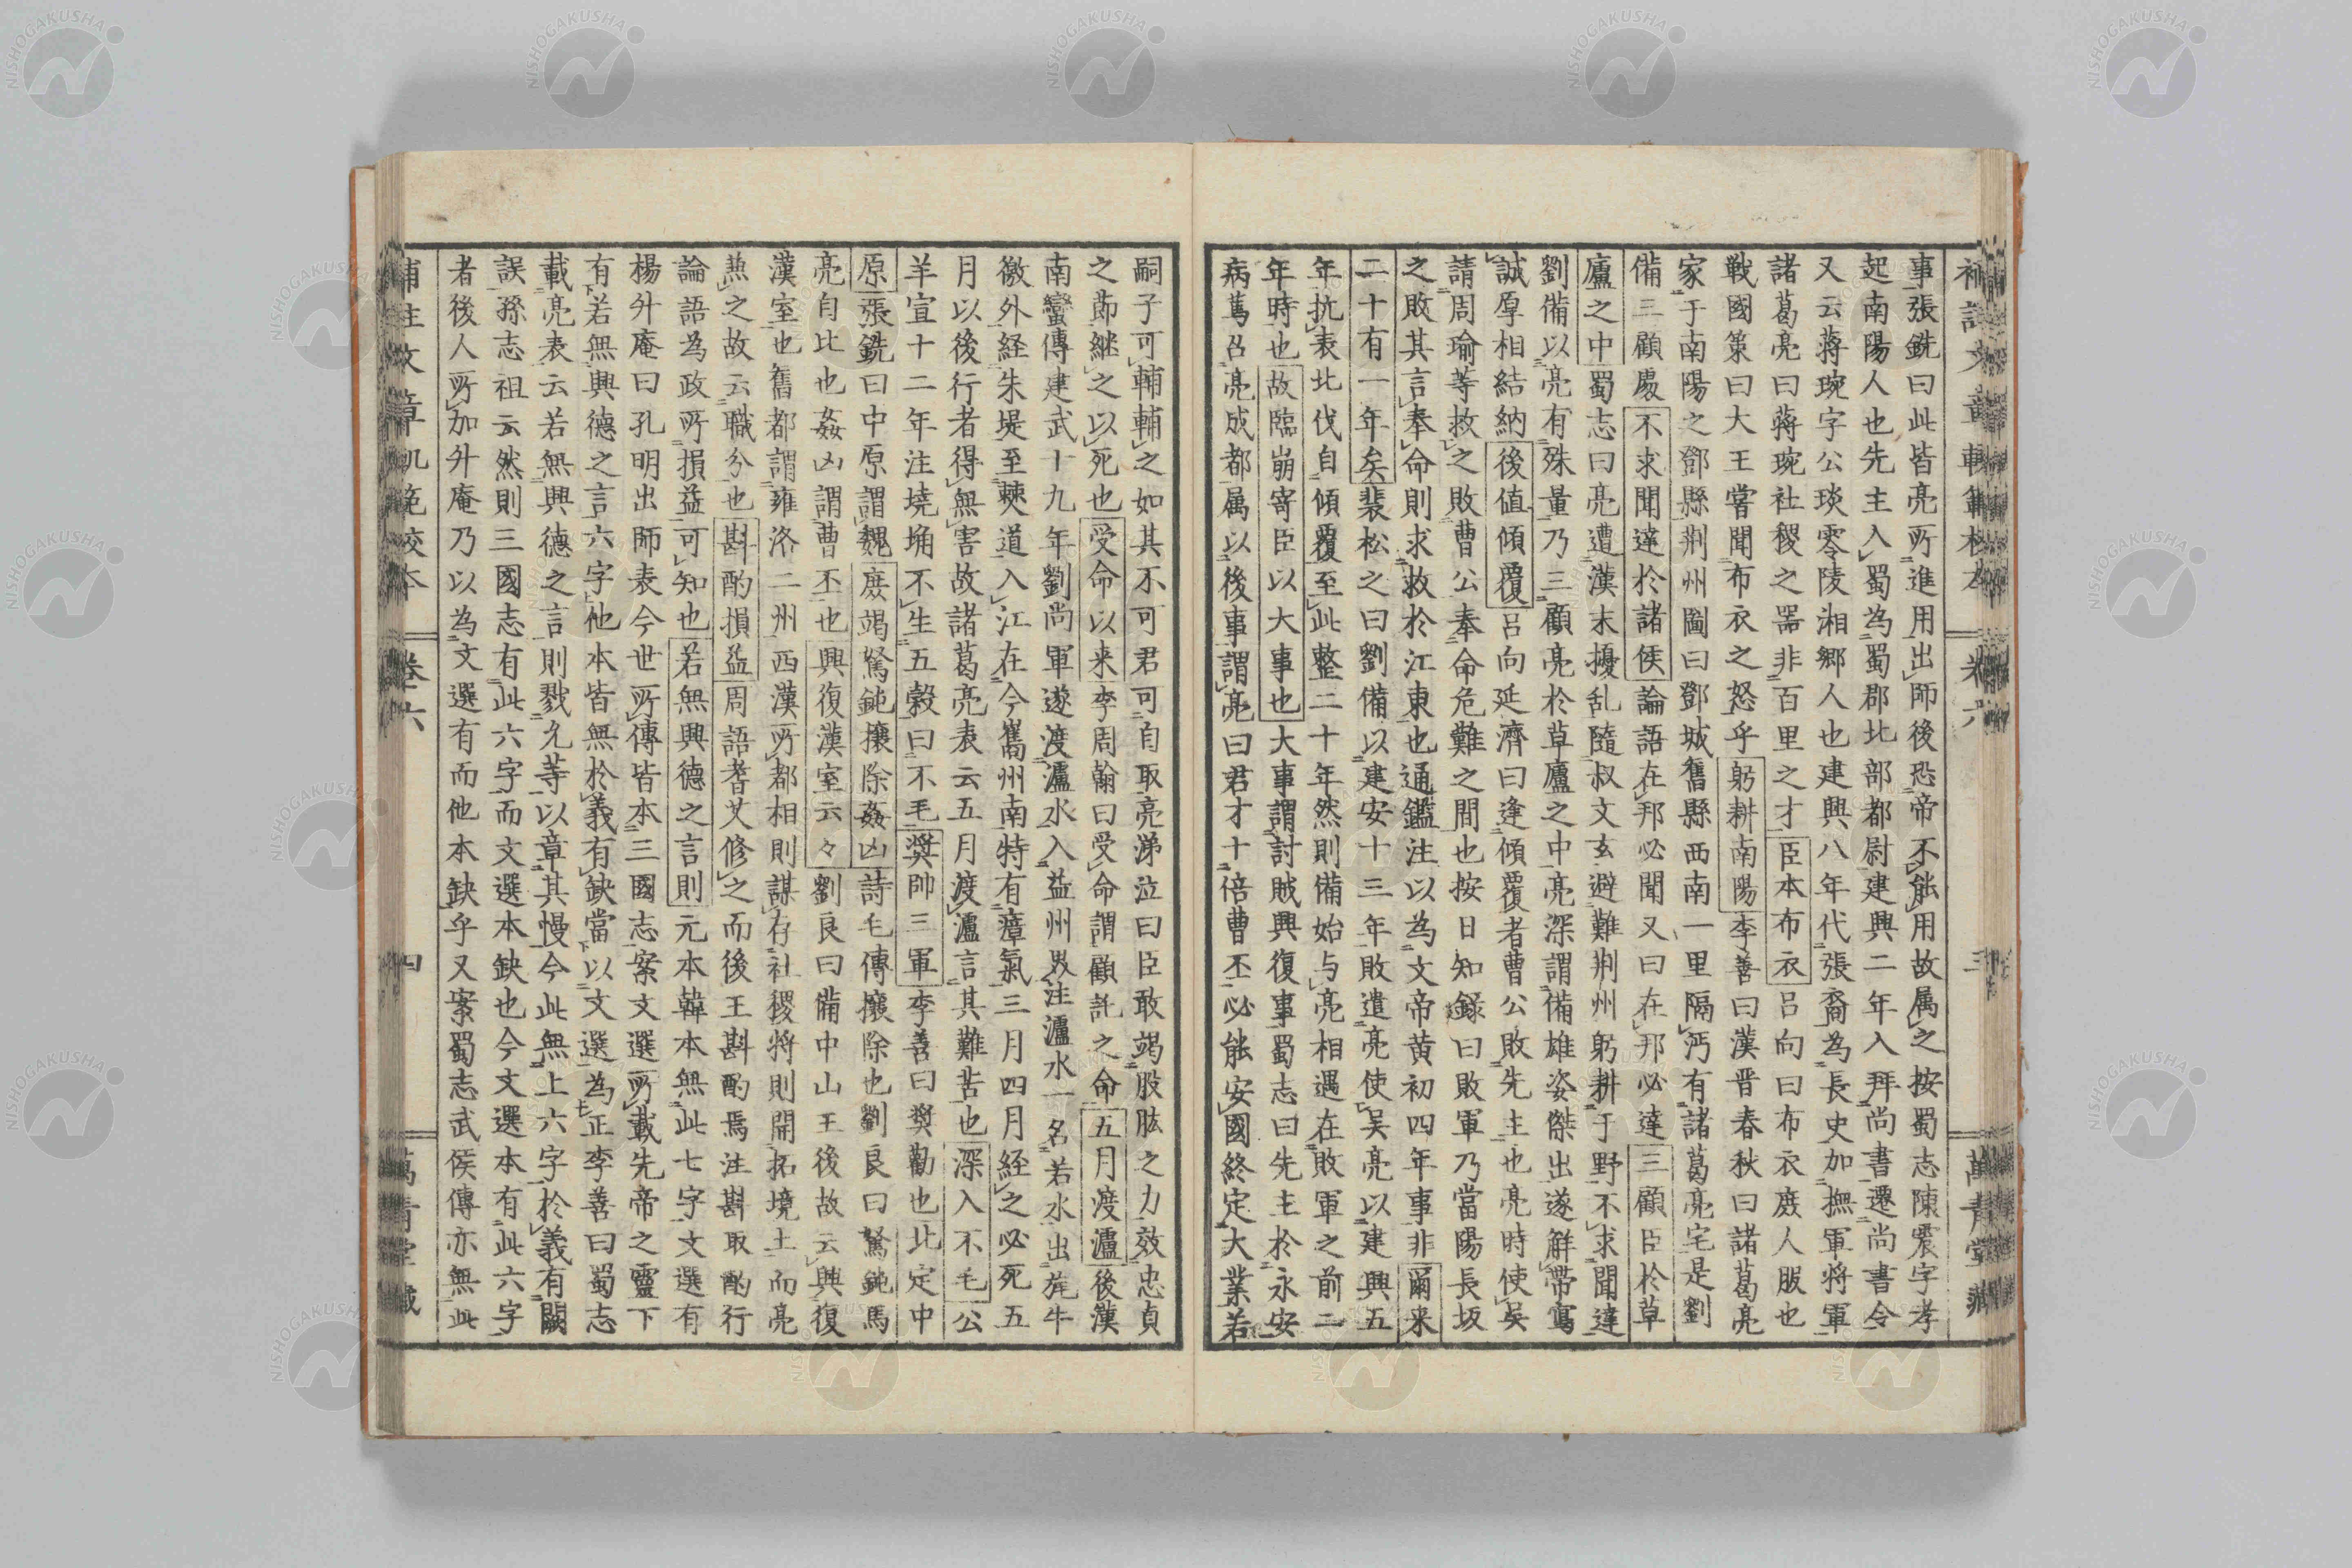 補註文章軌範校本 卷六 三 萬青堂藏
事張銑曰此皆亮所進用出師後恐帝不能用故属之按蜀志陳震字孝
起南陽人也先主入蜀為蜀郡北部都尉建興二年入拜尚書遷尚書令
又云蔣琬字公琰零陵湘鄉人也建興八年代張裔為長史加撫軍将軍
諸葛亮曰蔣琬社稷之噐非百里之才臣本布衣呂向曰布衣庶人服也
戦國策曰大王嘗聞布衣之怒乎躬耕南陽李善曰漢晋春秋曰諸葛亮
家于南陽之鄧縣荆州圖曰鄧城舊縣西南一里隔沔有諸葛亮宅是劉
備三顧處不求聞達於諸侯論語在邦必聞又曰在邦必達三顧臣於草
廬之中蜀志曰亮遭漢末擾乱隨叔父玄避難荆州躬耕于野不求聞達
劉備以亮有殊量乃三顧亮於草廬之中亮深謂備雄姿傑出遂解帶寫
誠厚相結納後值傾覆呂向延濟曰逢傾覆者曹公敗先主也亮時使吳
請周瑜等救之敗曹公奉命危難之間也按日知録曰敗軍乃當陽長坂
之敗其言奉命則求救於江東也通鑑注以為文帝黄初四年事非爾来
二十有一年矣裴松之曰劉備以建安十三年敗遣亮使吳亮以建興五
年抗表北伐自傾覆至此整二十年然則備始与亮相遇在敗軍之前二
年時也故臨崩寄臣以大事也大事謂討賊興復事蜀志曰先主於永安
病篤召亮成都属以後事謂亮曰君才十倍曹丕必能安國終定大業若
嗣子可輔輔之如其不可君可自取亮涕泣曰臣敢竭股肱之力效忠貞
之節継之以死也受命以来李周翰曰受命謂顧託之命五月渡瀘後漢
南蠻傳建武十九年劉尚軍遂渡瀘水入益州界注瀘水一名若水出旄牛
徼外経朱提至僰道入江在今嶲州南特有瘴氣三月四月経之必死五
月以後行者得無害故諸葛亮表云五月渡瀘言其難苦也深入不毛公
羊宣十二年注墝埆不生五穀曰不毛奨帥三軍李善曰奨勸也北定中
原張銑曰中原謂魏庶竭駑鈍攘除姦凶詩毛傳攘除也劉良曰駑鈍馬
亮自比也姦凶謂曹丕也興復漢室云々劉良曰備中山王後故云興復
漢室也舊都謂雍洛二州西漢所都相則謀存社稷将則開拓境土而亮
𤋱之故云職分也斟酌損益周語耆艾修之而後王斟酌焉注斟取酌行
論語為政所損益可知也若無興德之言則元本韓本無此七字文選有
楊升庵曰孔明出師表今世所傳皆本三國志案文選所載先帝之靈下
有若無興德之言六字他本皆無於義有缺當以文選為正李善曰蜀志
載亮表云若無興德之言則戮允等以章其慢今此無上六字於義有闕
誤孫志祖云然則三國志有此六字而文選本缺也今文選本有此六字
者後人所加升庵乃以為文選有而他本缺乎又案蜀志武侯傳亦無此
補註文章軌範校本 卷六 四 萬青堂藏